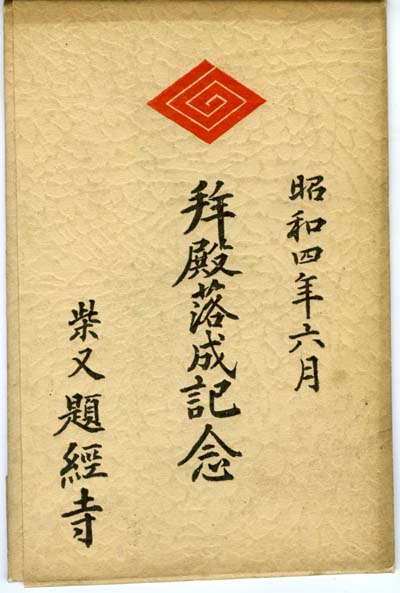 昭和四年六月
拜殿落成記念
柴又題經寺